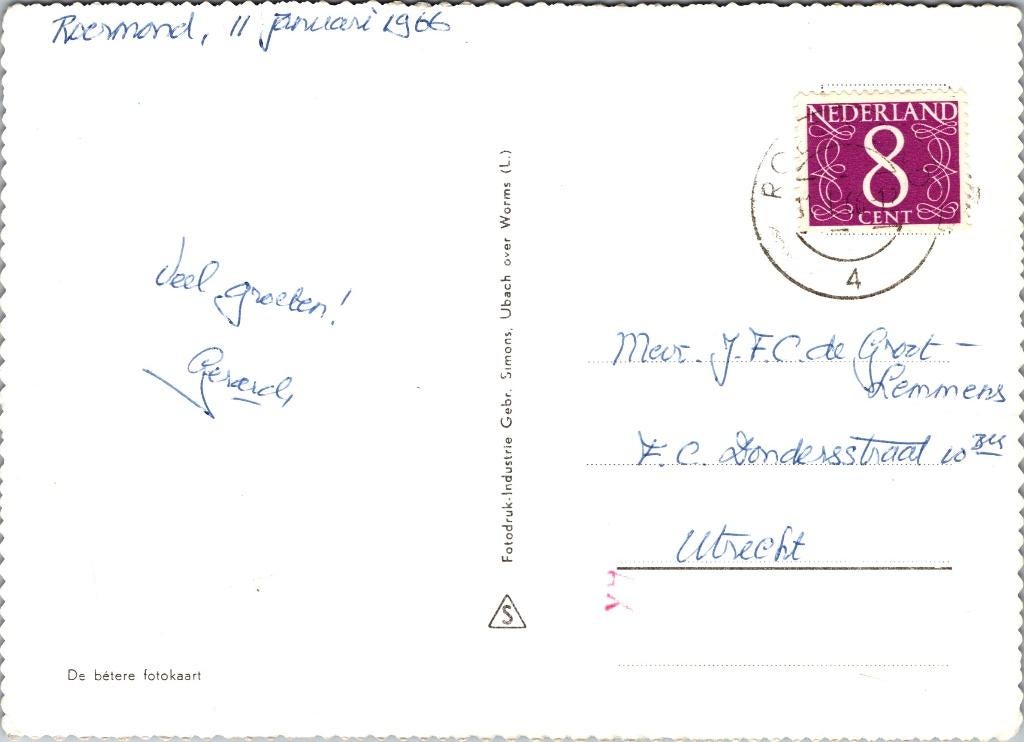 Roermond, 11 januari 1966
NEDERLAND
8
CENT
4
Veel groeten!
Gerard,
Mevr. J.F.C. de Groot -
Lemmens
F.C. Dondersstraat 10 Bis
Utrecht
Fotodruk-Industrie Gebr. Simons, Ubach over Worms (L.)
S
De bétere fotokaart